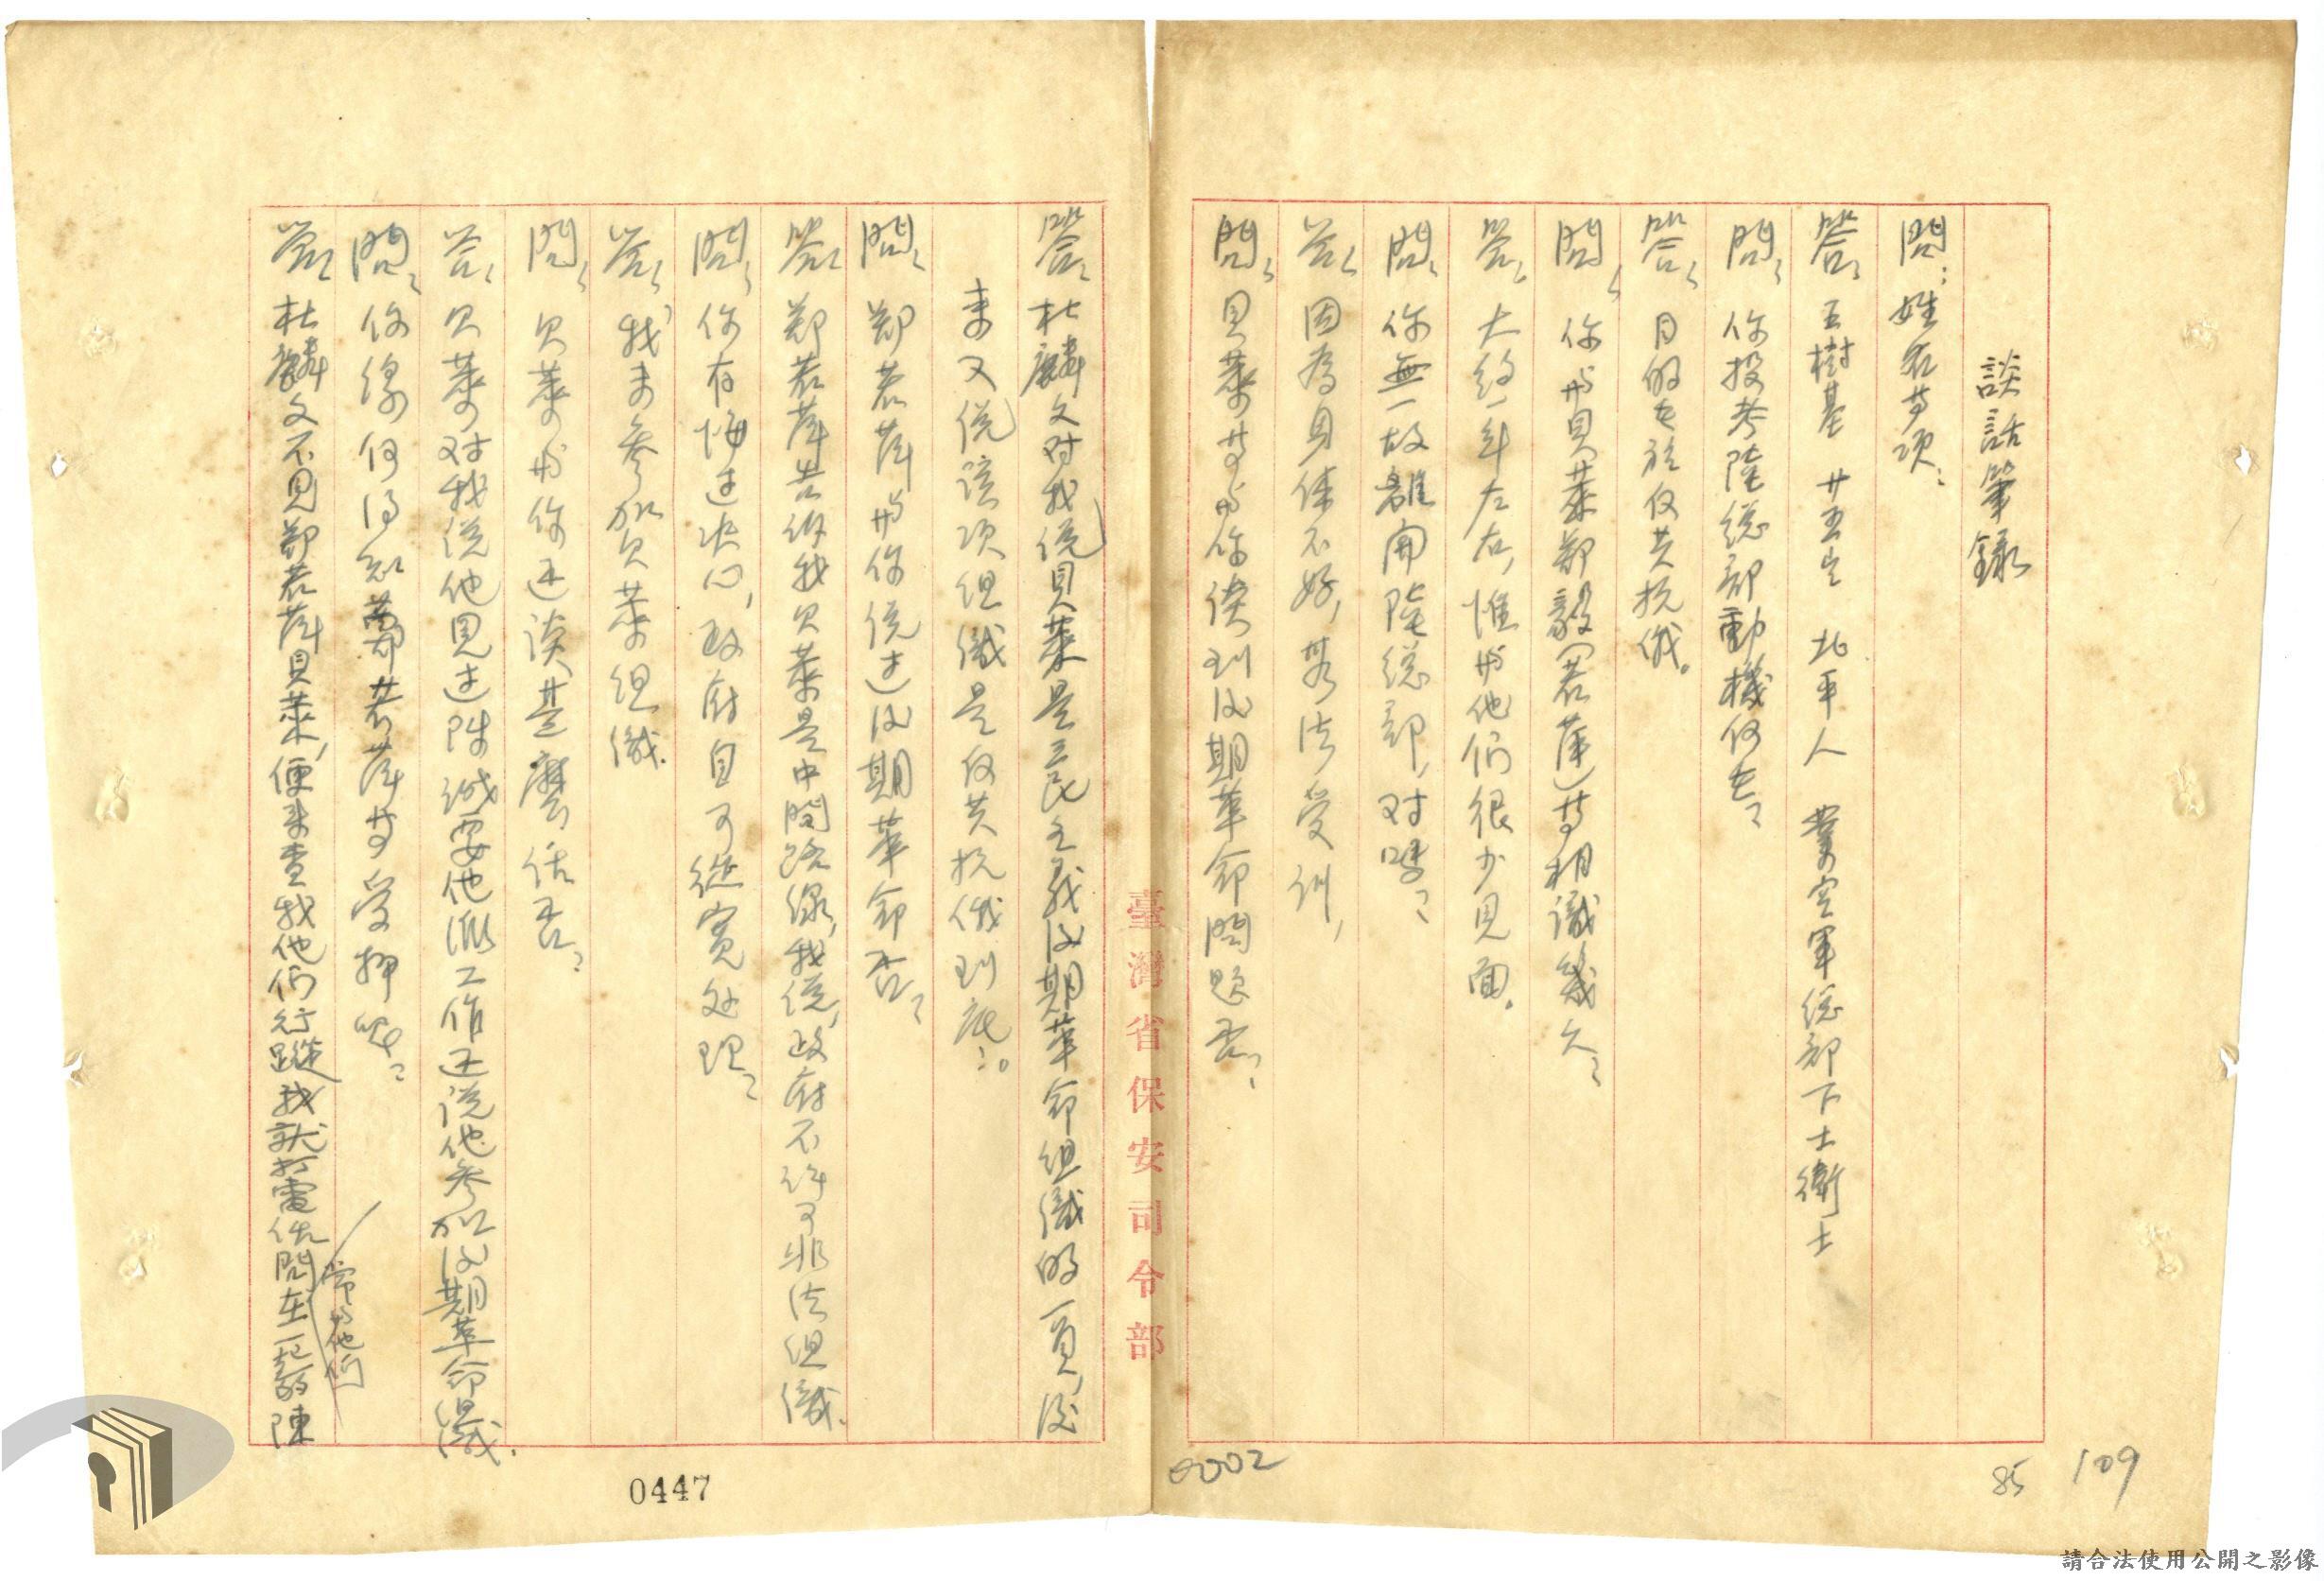 談話筆錄
問：姓名等項：
答：王樹基 廿五歲 北平人 業空軍總部下士衛士
問：你投考陸總部動機何在？
答：目的在於反共抗俄。
問：你與貝萊鄭毅（若萍）等相識幾久？
答：大約一年左右，惟與他們很少見面。
問：你無故離開陸總部，对嗎？
答：因為身体不好，無法受訓，
問：貝萊等與你談到後期革命問題否？
答：杜麟文对我說貝萊是三民主義後期革命組織的一員，後
來又說該項組織是反共抗俄到底：。
問：鄭若萍與你說过後期革命否？
答：鄭若萍告訴我貝萊是中間路線，我說，政府不許可非法組織。
問：你有悔过决心，政府自可從寬处理？
答：我未參加貝萊組織。
問：貝萊與你还談甚麼話否？
答：貝萊对我說他見过陳誠要他派工作还說他參加後期革命組織。
問：你緣何得知鄭若萍等受押呢？
常與他們
答：杜麟文不見鄭若萍貝萊，便來查我他們行蹤我就打電話問在一起的陳
臺灣省保安司令部
0447
0002
85
109
請合法使用公開之影像